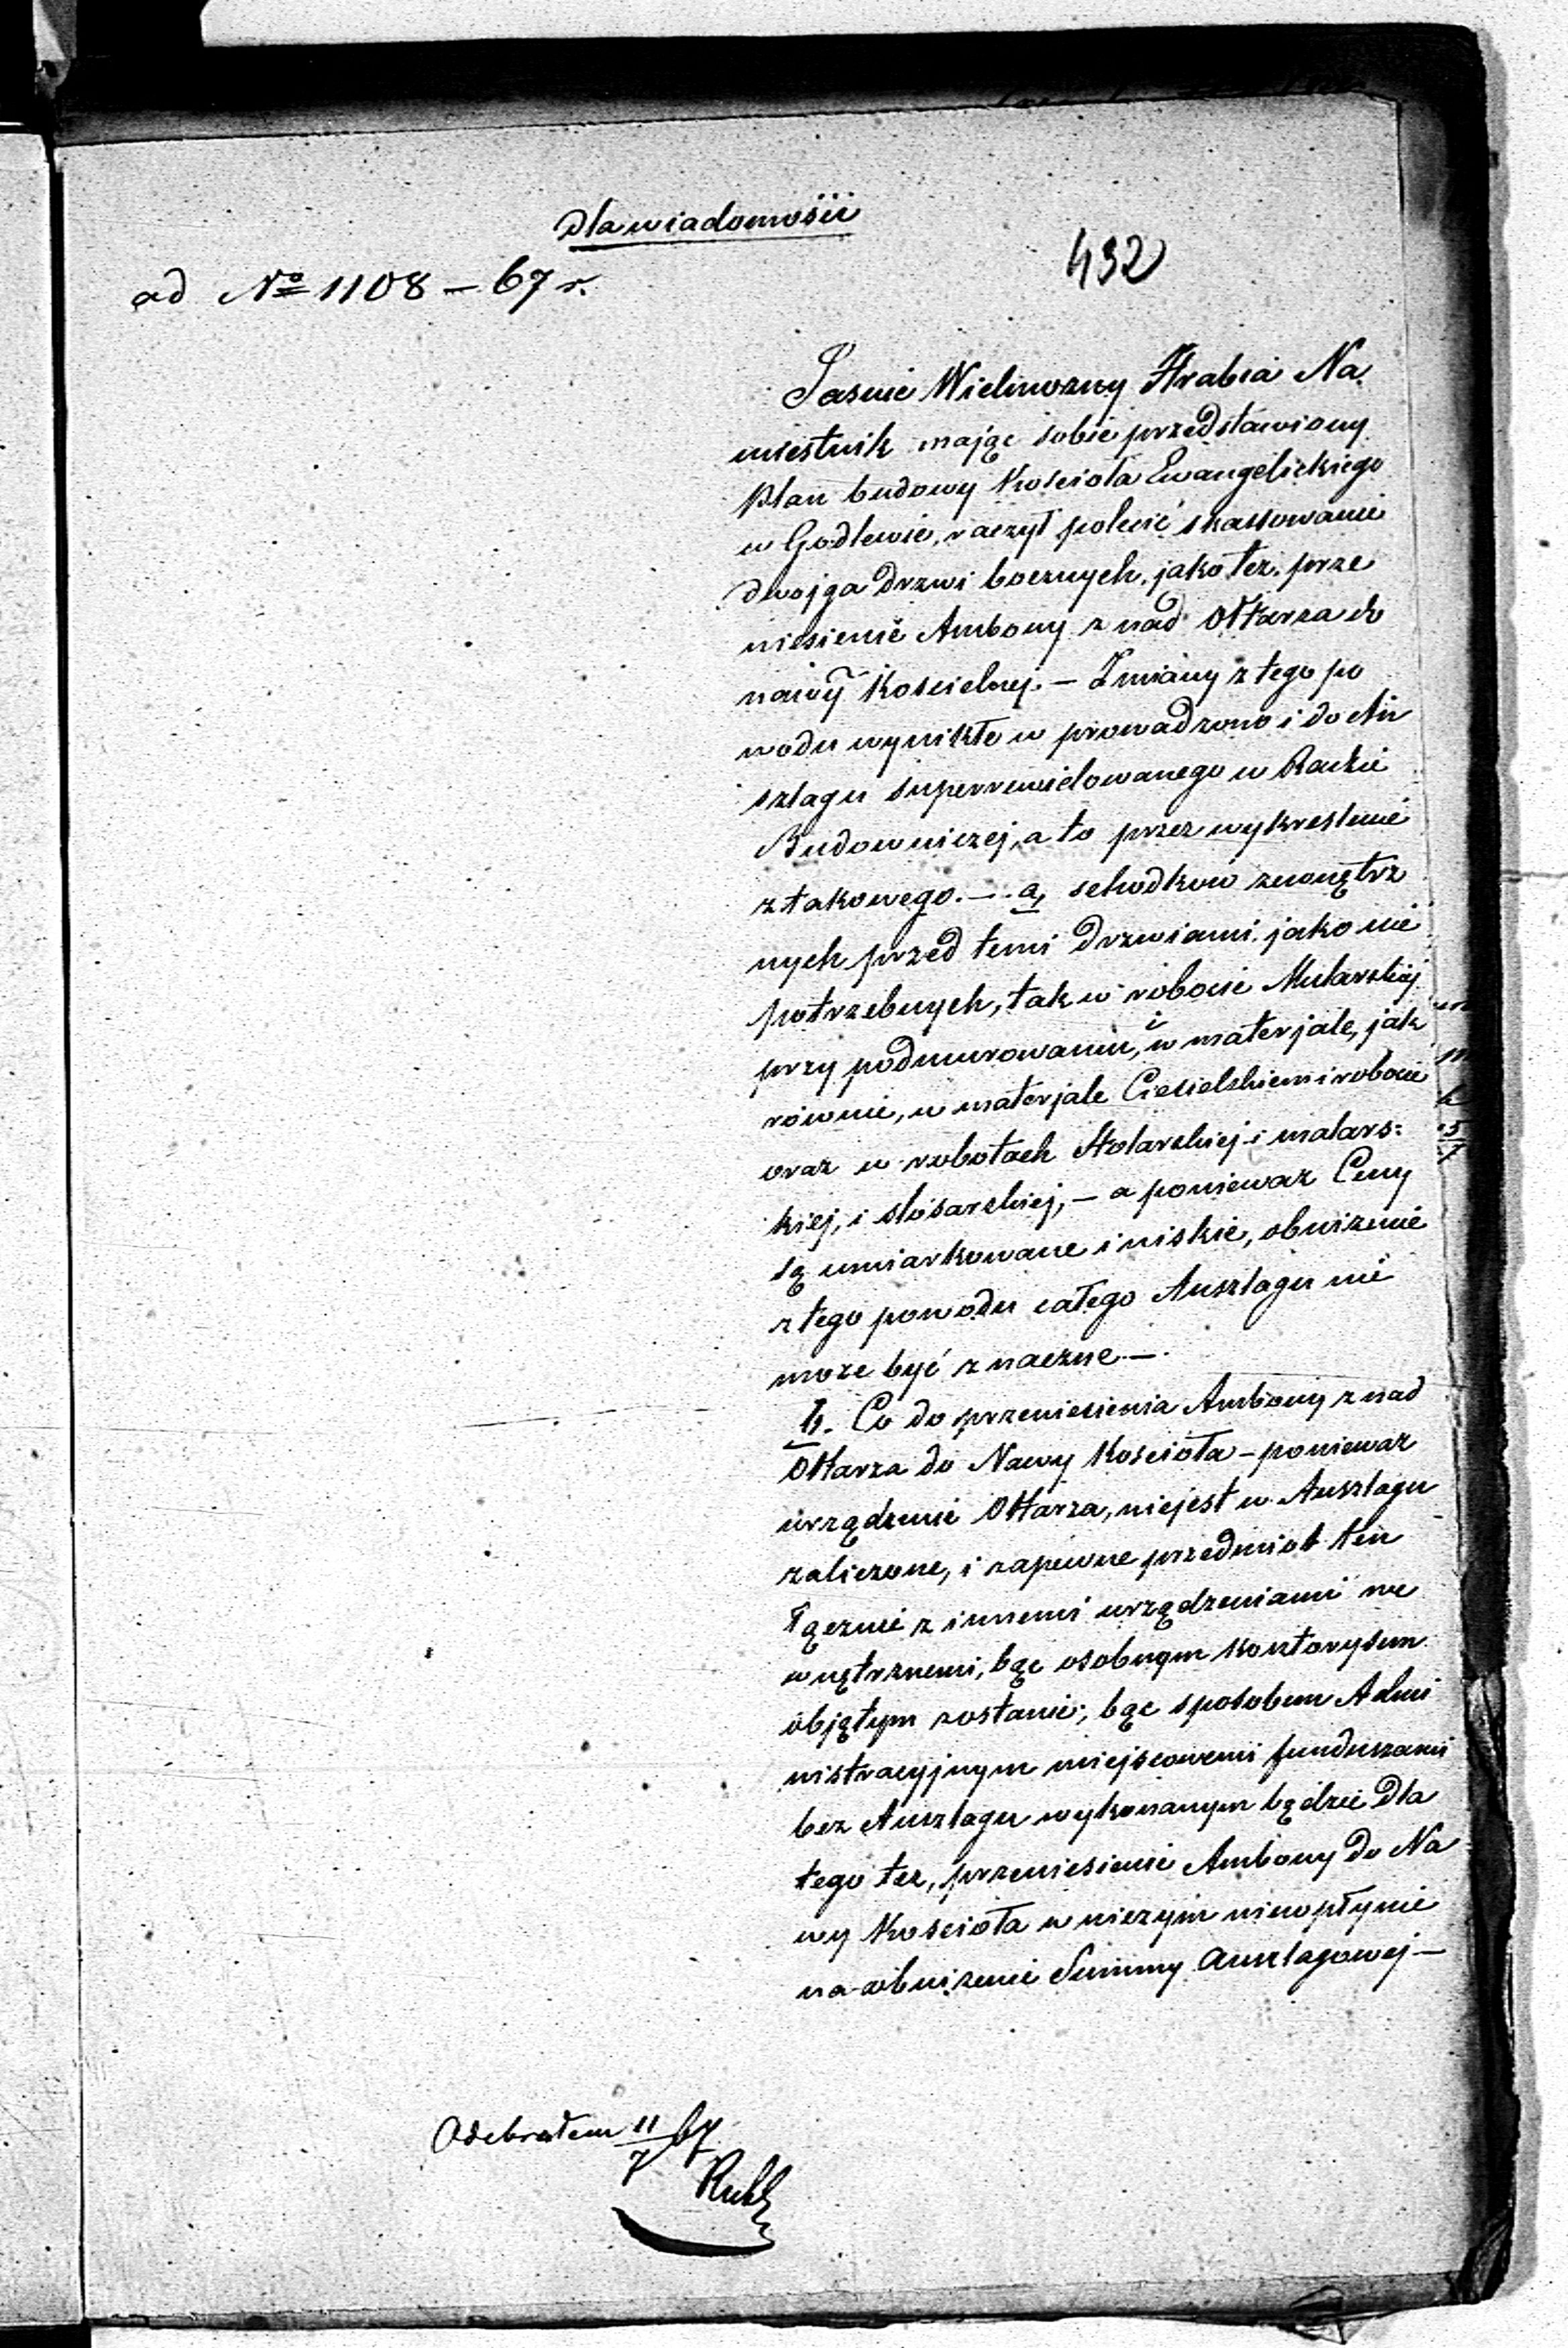 Dla wiadomości
432
ad № 1108 – 67 r.
Jaśnie Wielmożny Hrabia Na
miestnik mając sobie przedstawiony
plan budowy Kościoła Ewangelickiego
w Godlewie, raczył polecić skassowanie
dwojga drzwi bocznych, jako też prze
niesienie Ambony z nad Ołtarza do
nawy Kościelnej. – Zmiany z tego po
wodu wynikłe w prowadzono i do An
szlagu superrewidowanego w Radzie
Budowniczej, a to przez wykreślenie
z takowego. – a, schodków zewnętrz
nych przed temi drzwiami jako nie
potrzebnych, tak w robocie Mularskiej
przy podmurowaniu, i w materjale, jak
równie, w materjale Ciesielskiem i robocie
oraz w robotach Stolarskiej i malars:
kiej, i slósarskiej, – a ponieważ Ceny
są umiarkowane i niskie, obniżenie
z tego powodu całego Anszlagu nie
może być znaczne –.
b. Co do przeniesienia Ambony z nad
Ołtarza do Nawy Kościoła – ponieważ
urządzenie Ołtarza, niejest w Anszlagu
zaliczone, i zapewne przedmiot ten
łącznie z innemi urządzeniami we
wnętrznemi, bąc osobnym kosztorysem
objętym zostanie; bąc sposobem Admi
nistracyjnym miejscowemi funduszami
bez Anszlagu wykonanym będzie Dla
tego też, przeniesienie Ambony do Na
wy Kościoła w niczym niewpłynie
na obniżenie Summy anszlagowej –
Odebrałem 11/7 67